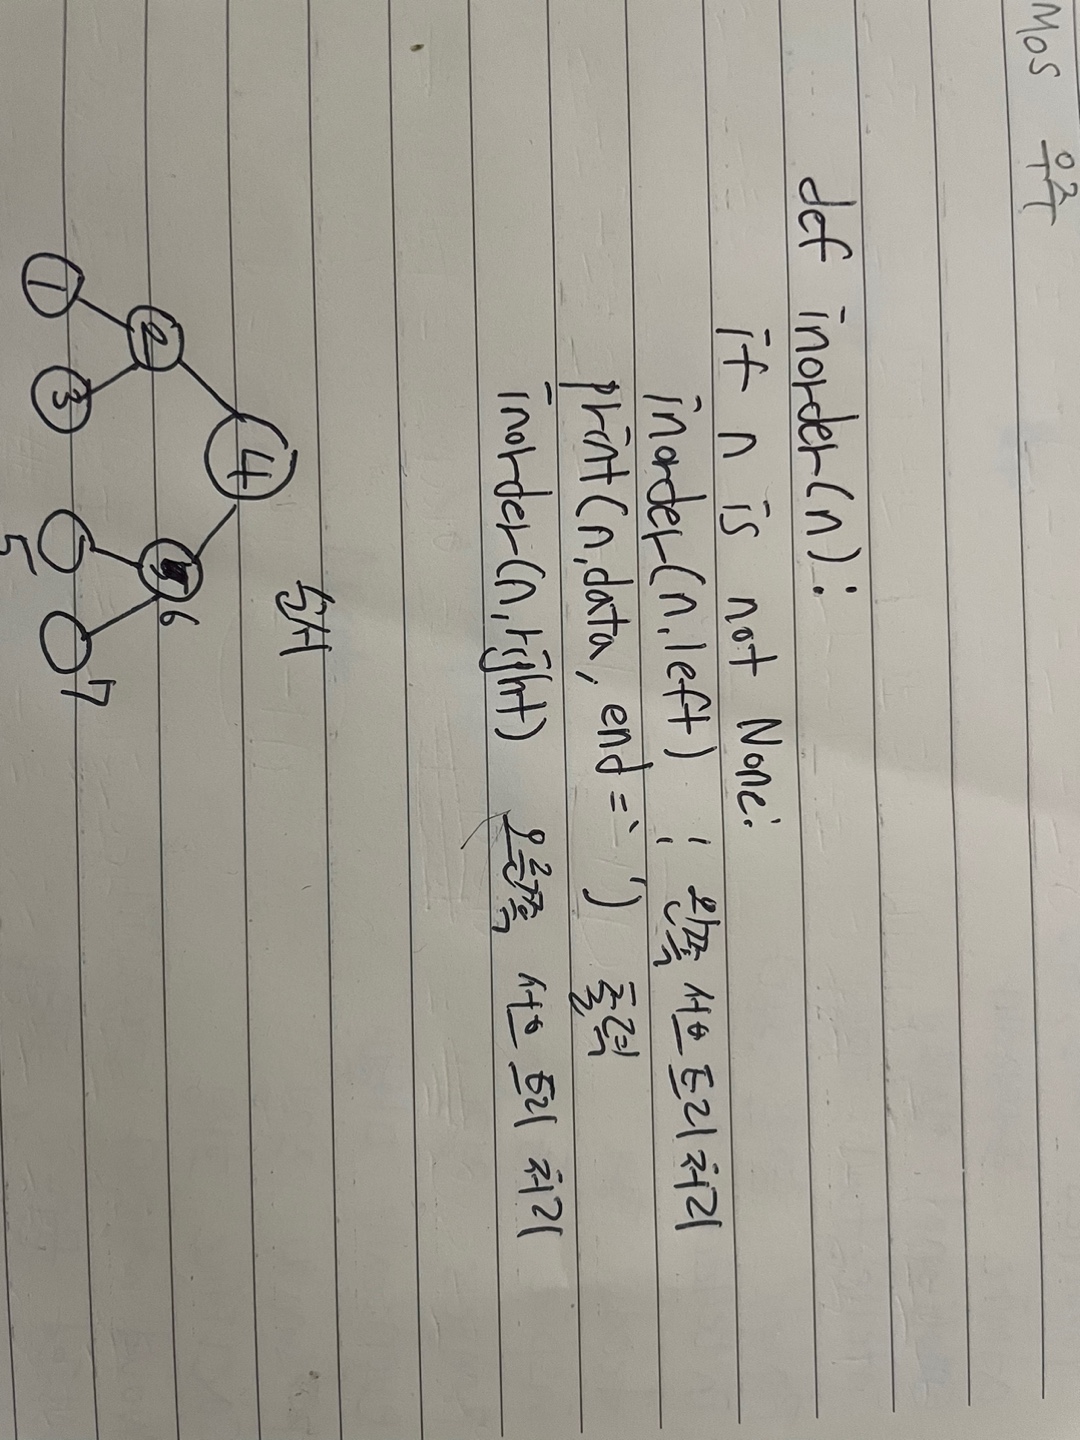 MOS 우주
def inorder(n):
if n is not None:
inorder(n,left) : 왼쪽 서브 트리 처리
print(n,data, end=' ') 출력
inorder(n,right) 오른쪽 서브 트리 처리
순서
4
2 6
1 3 7
5